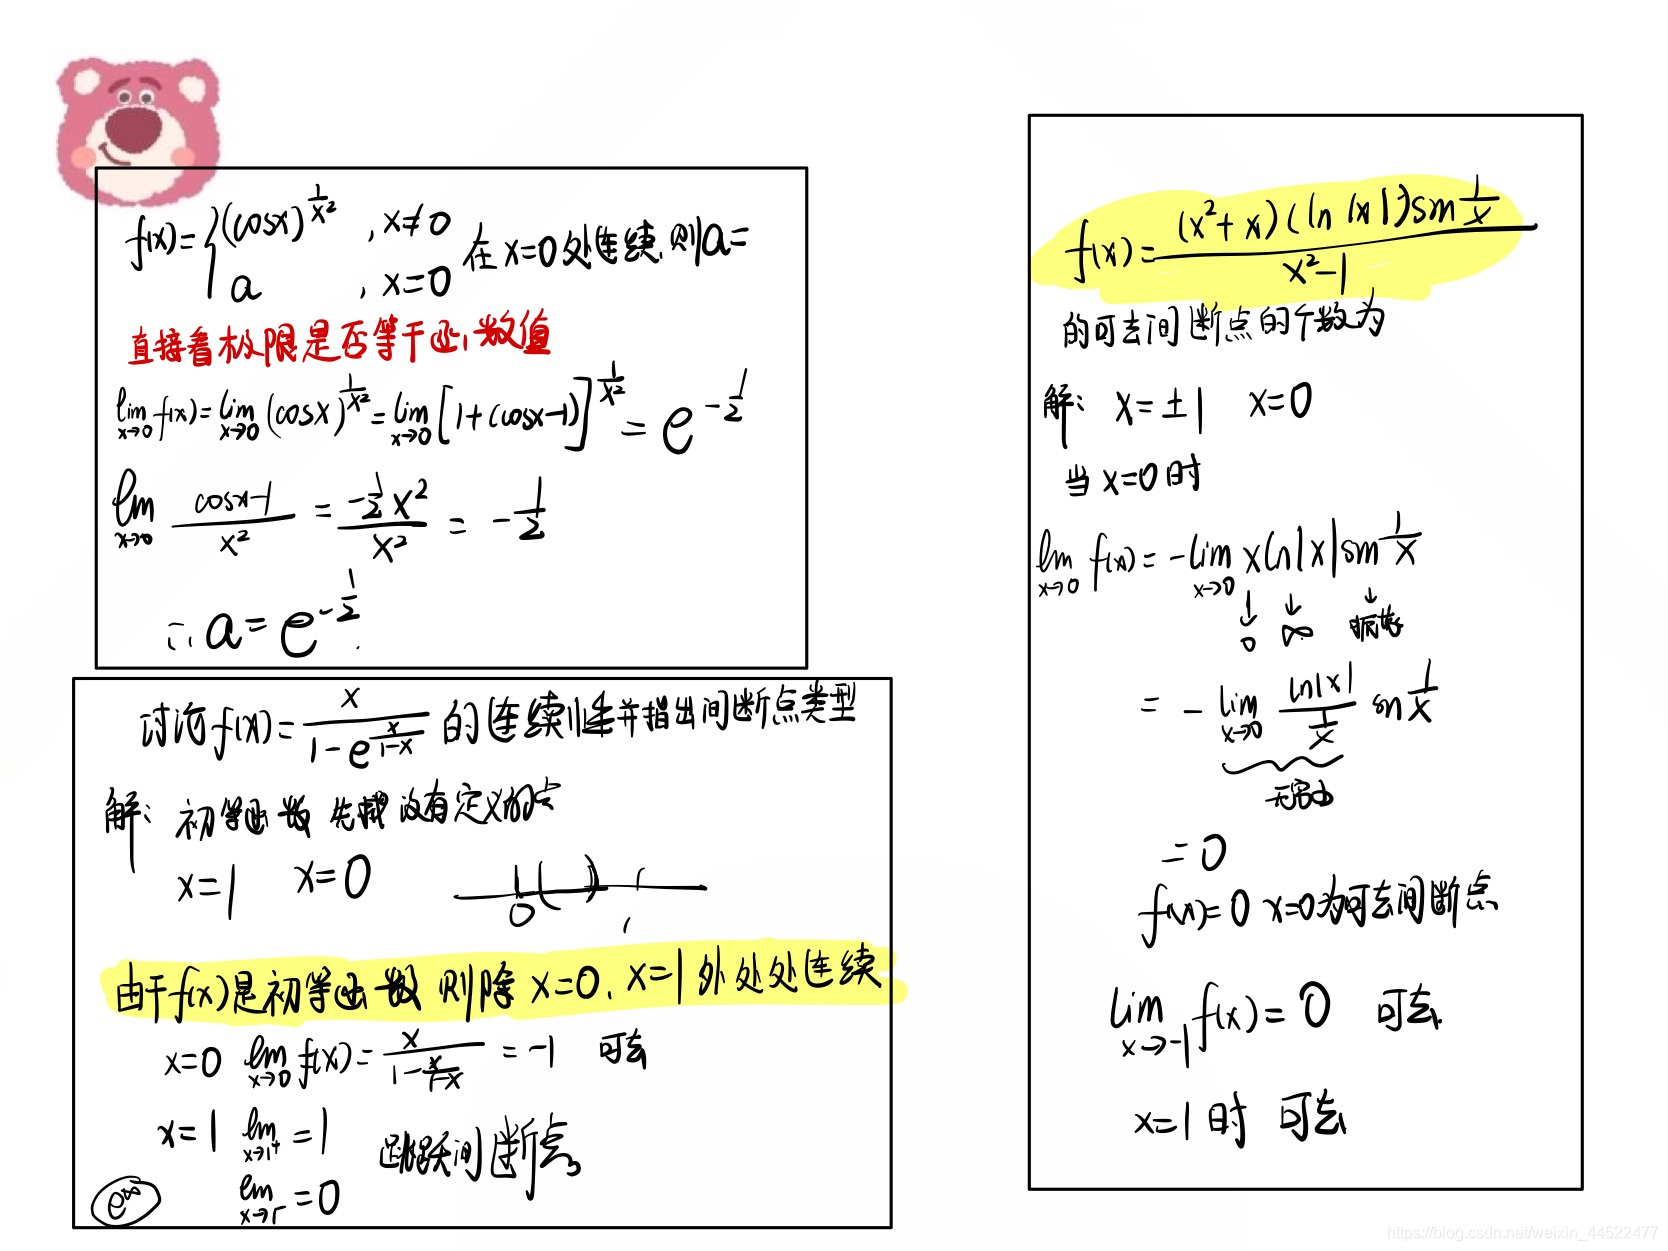 f(x)={(cosx)^{1/x²} , x≠0
a , x=0 在x=0处连续,则a=
直接看极限是否等于函数值
lim_{x→0} f(x)=lim_{x→0} (cosx)^{1/x²}=lim_{x→0} [1+(cosx-1)]^{1/x²} = e^{-1/2}
lim_{x→0} (cosx-1)/x² = (-1/2 x²)/x² = -1/2
∴ a=e^{-1/2}.
讨论f(x)=x/(1-e^{x/(1-x)}) 的连续性并指出间断点类型
解: 初等函数 先找没有定义的点
x=1 x=0
0
由于f(x)是初等函数 则除 x=0, x=1外处处连续
x=0 lim_{x→0} f(x)= x/(1-x/(1-x)) = -1 可去
x=1 lim_{x→1⁺} =1 跳跃间断点
lim_{x→1⁻} =0
e^∞
f(x)=(x²+x)(ln|x|)sin 1/x / x²-1
的可去间断点的个数为
解: x=±1 x=0
当x=0时
lim_{x→0} f(x)= -lim_{x→0} x ln|x| sin 1/x
↓ ↓ ↓
0 ∞ 振荡
= -lim_{x→0} ln|x|/(1/x) sin 1/x
无穷小
=0
f(x)=0 x=0为可去间断点
lim_{x→-1} f(x)=0 可去.
x=1时 可去
https://blog.csdn.net/weixin_44522477